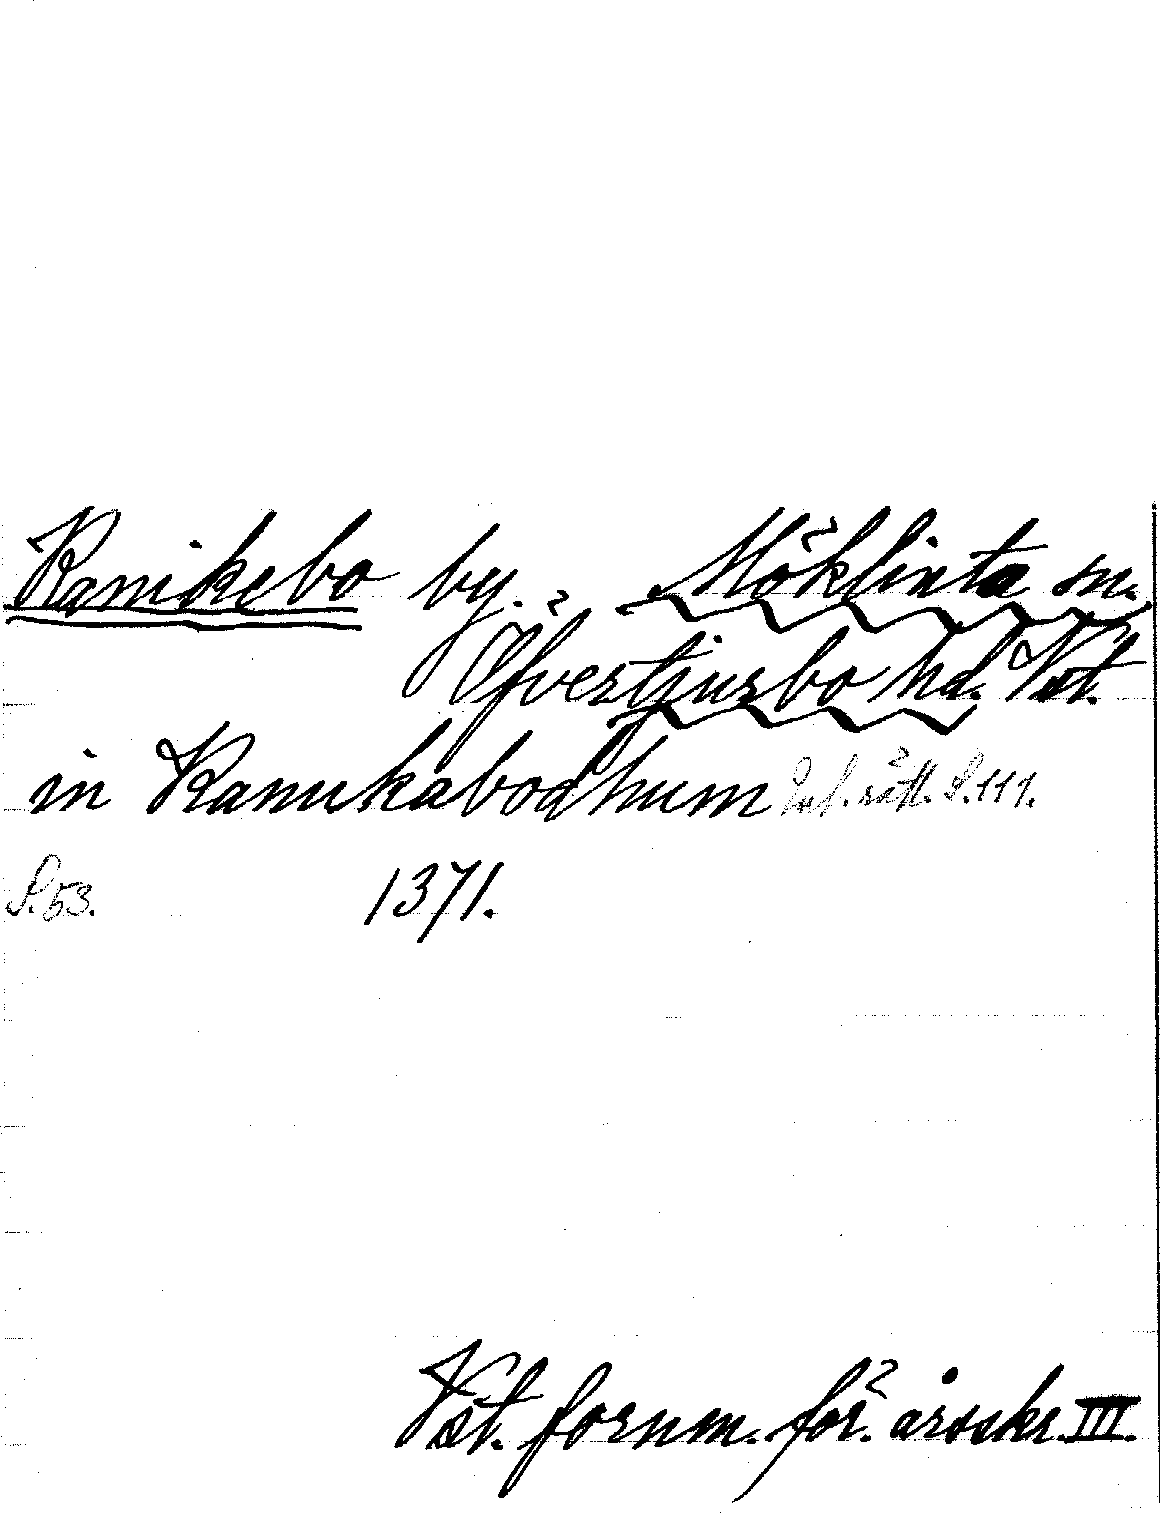 Kanikebo by. Möklinta sn.
Öfvertjurbo hd. Vst.
in Kanukabodhum Enl. rätt. S. 111.
S. 53. 1371.
Vst. fornm. för. årsskr. III.